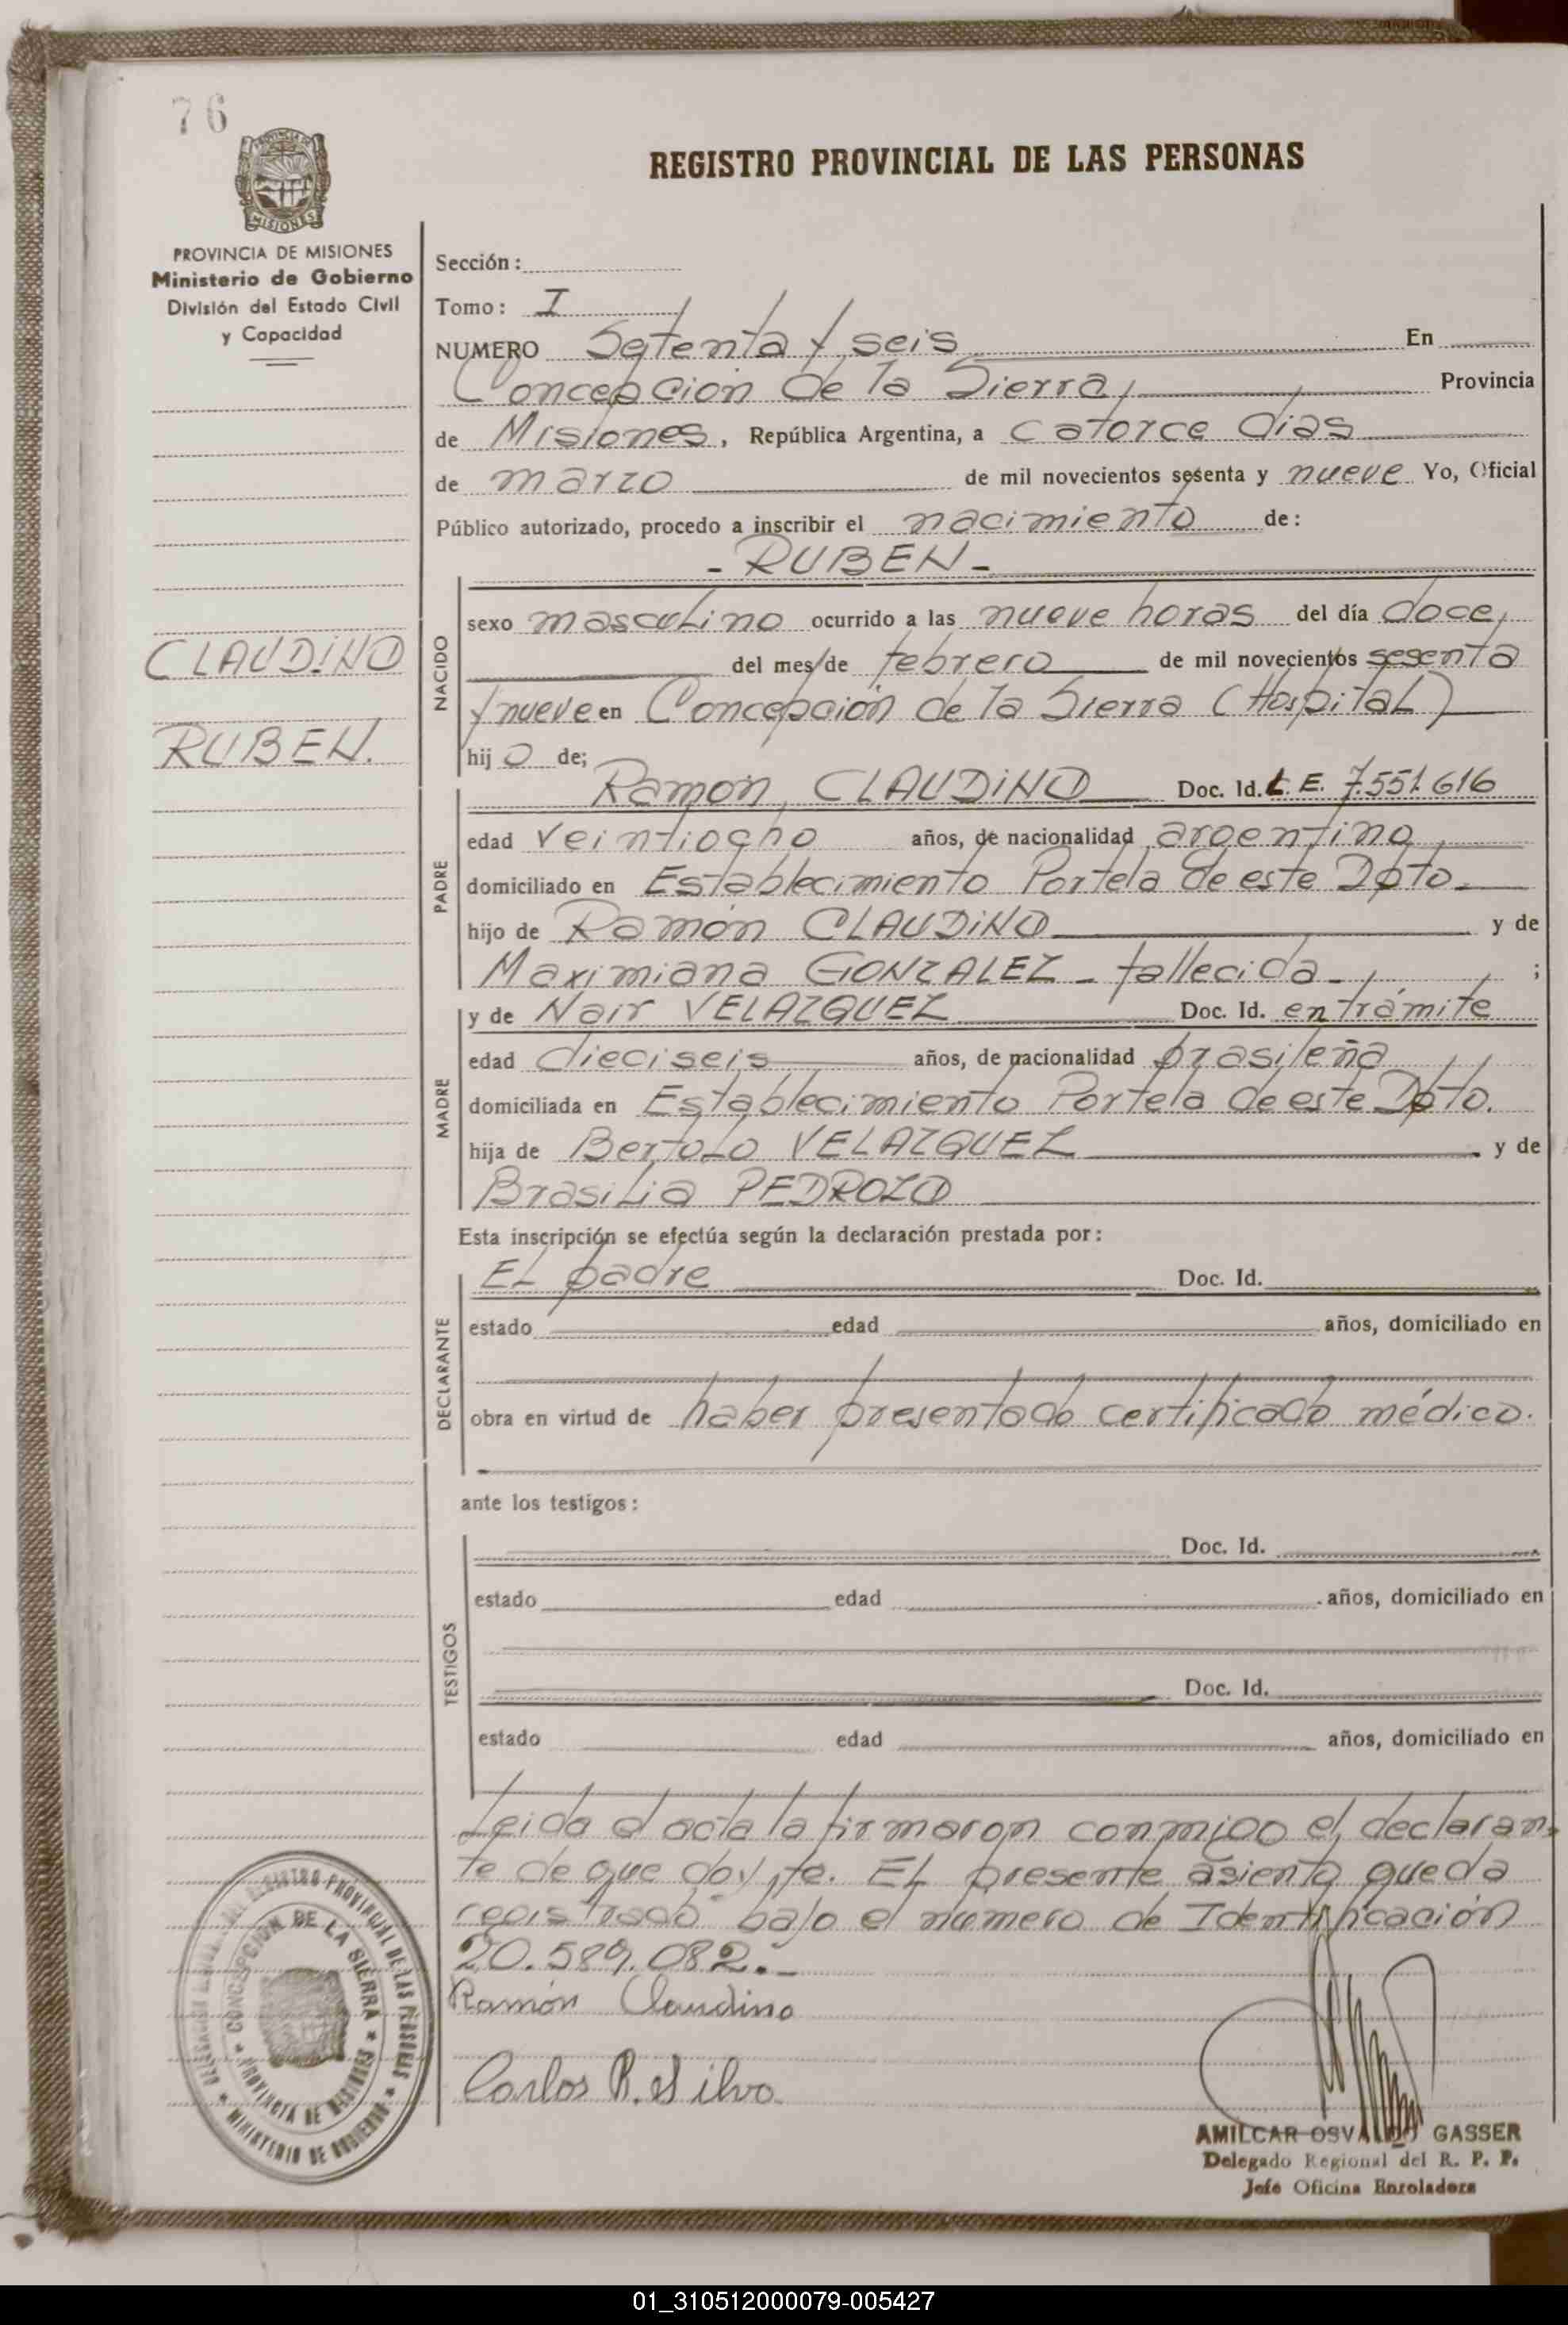 76
REGISTRO PROVINCIAL DE LAS PERSONAS
PROVINCIA DE MISIONES
Ministerio de Gobierno
División del Estado Civil
y Capacidad
CLAUDINO
RUBEN.
Sección:
Tomo: I
NUMERO Setenta y seis En
Concepción de la Sierra, Provincia
de Misiones, República Argentina, a catorce dias
de marzo de mil novecientos sesenta y nueve Yo, Oficial
Público autorizado, procedo a inscribir el nacimiento de:
- RUBEN -
NACIDO
sexo masculino ocurrido a las nueve horas del día doce,
del mes de febrero de mil novecientos sesenta
y nueve en Concepción de la Sierra (Hospital)
hijo de;
PADRE
Ramón, CLAUDINO Doc. Id. L.E. 7.551.616
edad veintiocho años, de nacionalidad argentino
domiciliado en Establecimiento Portela de este Dpto.
hijo de Ramón CLAUDINO y de
Maximiana GONZALEZ - fallecida - ;
MADRE
y de Nair VELAZQUEZ Doc. Id. en trámite
edad dieciseis años, de nacionalidad brasileña
domiciliada en Establecimiento Portela de este Dpto.
hija de Bertolo VELAZQUEZ y de
Brasilia PEDROZO
Esta inscripción se efectúa según la declaración prestada por:
DECLARANTE
El padre Doc. Id.
estado edad años, domiciliado en
obra en virtud de haber presentado certificado médico.
ante los testigos:
TESTIGOS
Doc. Id.
estado edad años, domiciliado en
Doc. Id.
estado edad años, domiciliado en
Leida el acta la firmaron conmigo el declaran-
te de que doy fe. El presente asiento queda
registrado bajo el numero de Identificación
20.589.082.-
Ramón Claudino
Carlos R. Silva
AMILCAR OSVALDO GASSER
Delegado Regional del R. P. P.
Jefe Oficina Enroladora
REGISTRO PROVINCIAL DE LAS PERSONAS
CONCEPCION DE LA SIERRA
PROVINCIA DE MISIONES
MINISTERIO DE GOBIERNO
01_310512000079-005427